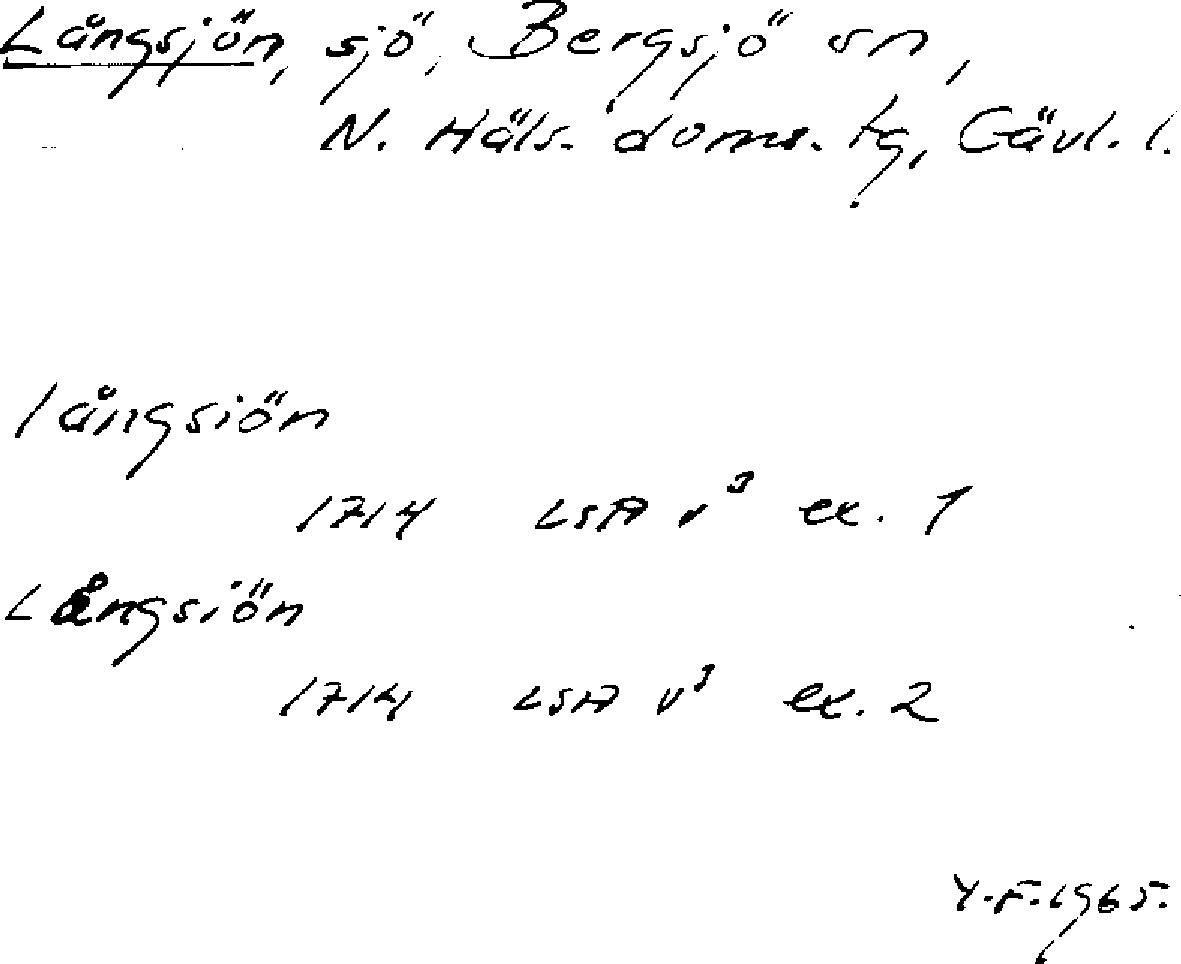 Långsjön, sjö, Bergsjö sn,
N. Häls. doms. tg, Gävl. l.
långsiön
1714 LSA V³ ex. 1
Långsiön
1714 LSA V³ ex. 2
Y.F. 1965.